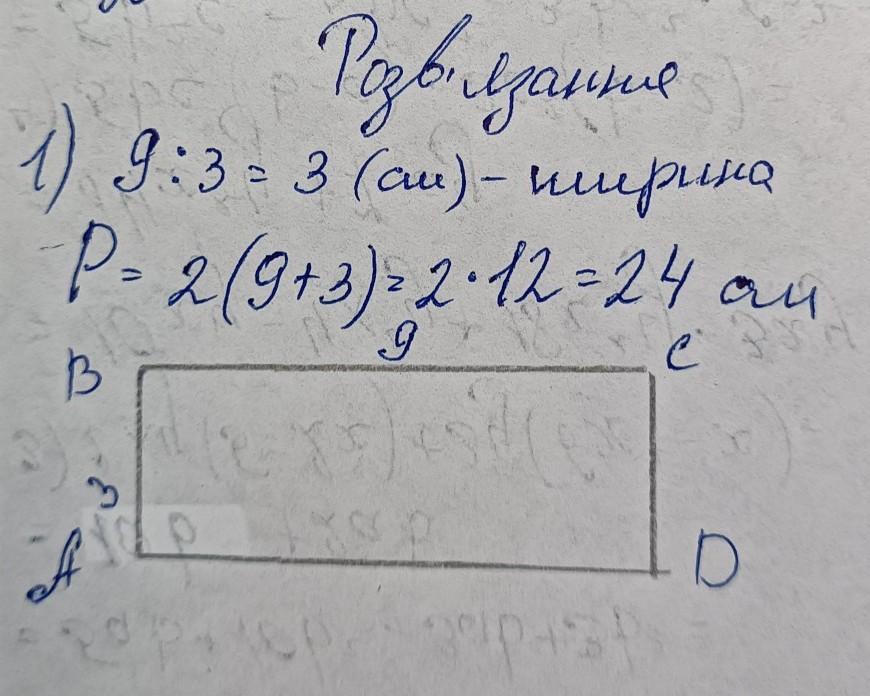 Розв'язання
1) 9:3 = 3 (см) - ширина
P = 2(9+3) = 2·12 = 24 см
9
B C
3
A D